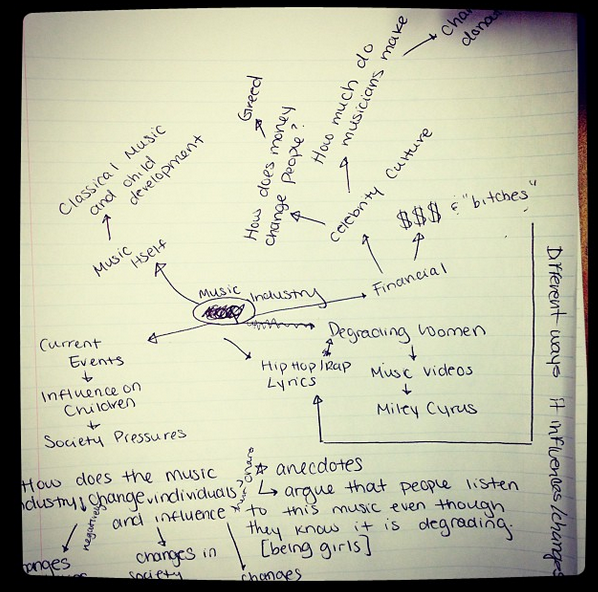 Classical Music
and child
development
Music
Itself
Greed
How does money
change people?
How much do
musicians make
Celebrity Culture
$$$ & "bitches"
Financial
Music Industry
Current
Events
Influence on
Children
Society Pressures
Degrading Women
Hip Hop/Rap
Lyrics
Music videos
Miley Cyrus
Different ways it influences/changes
How does the music
industry change individuals?
negatively
and influence
changes in
society
changes
* anecdotes
argue that people listen
to this music even though
they know it is degrading.
[being girls]